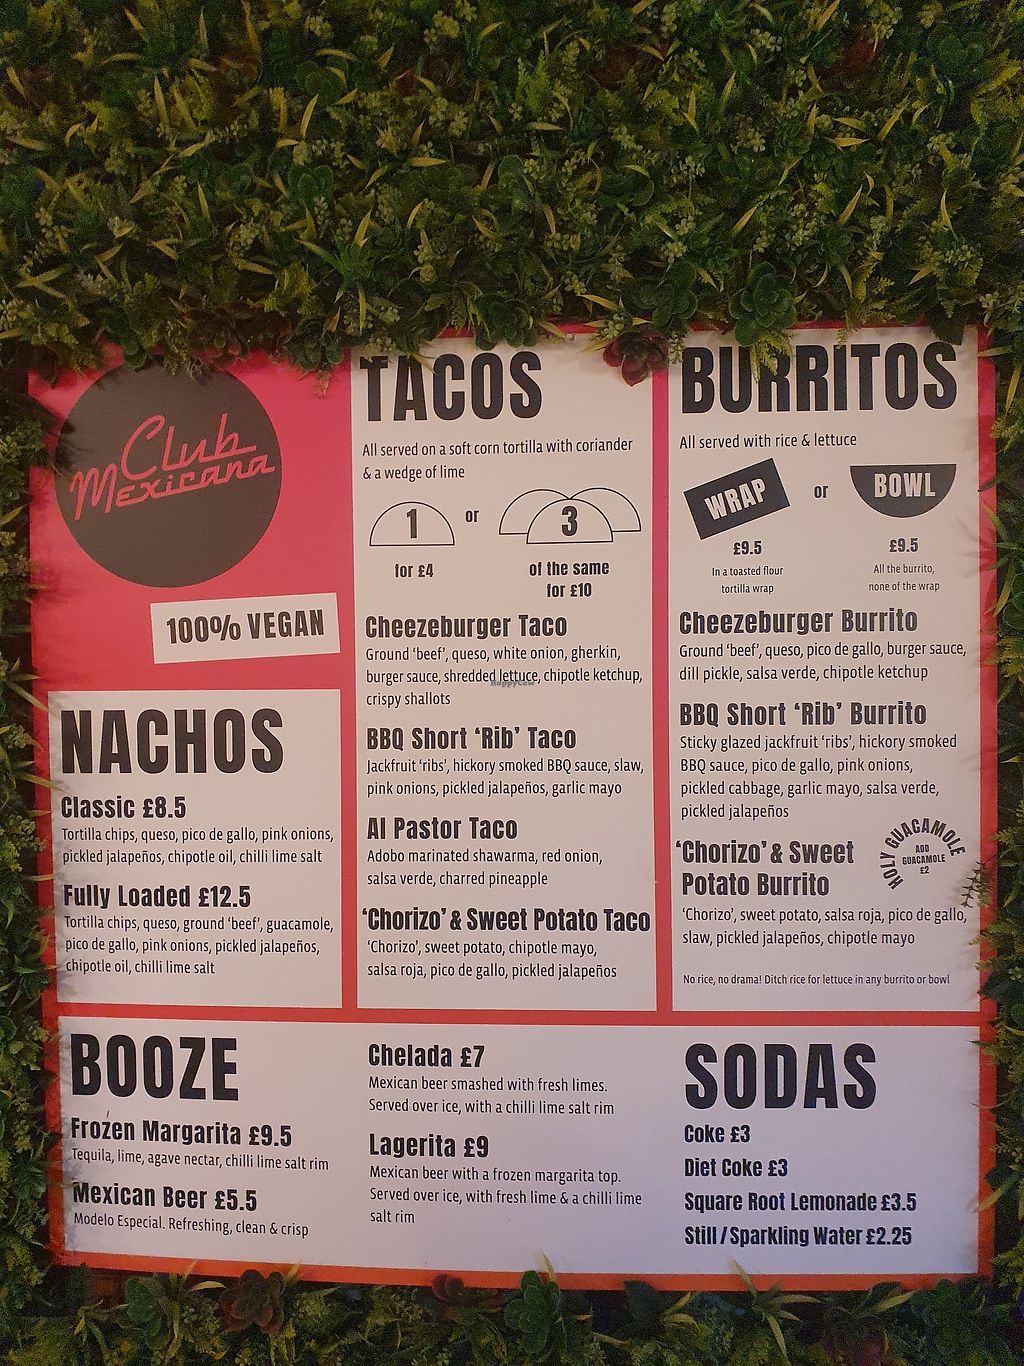 Club
Mexicana
100% VEGAN
NACHOS
Classic £8.5
Tortilla chips, queso, pico de gallo, pink onions,
pickled jalapeños, chipotle oil, chilli lime salt
Fully Loaded £12.5
Tortilla chips, queso, ground ‘beef’, guacamole,
pico de gallo, pink onions, pickled jalapeños,
chipotle oil, chilli lime salt
TACOS
All served on a soft corn tortilla with coriander
& a wedge of lime
1 or 3
for £4
of the same
for £10
Cheezeburger Taco
Ground ‘beef’, queso, white onion, gherkin,
burger sauce, shredded lettuce, chipotle ketchup,
HappyCow
crispy shallots
BBQ Short ‘Rib’ Taco
Jackfruit ‘ribs’, hickory smoked BBQ sauce, slaw,
pink onions, pickled jalapeños, garlic mayo
Al Pastor Taco
Adobo marinated shawarma, red onion,
salsa verde, charred pineapple
‘Chorizo’ & Sweet Potato Taco
‘Chorizo’, sweet potato, chipotle mayo,
salsa roja, pico de gallo, pickled jalapeños
BURRITOS
All served with rice & lettuce
WRAP or BOWL
£9.5
In a toasted flour
tortilla wrap
£9.5
All the burrito,
none of the wrap
Cheezeburger Burrito
Ground ‘beef’, queso, pico de gallo, burger sauce,
dill pickle, salsa verde, chipotle ketchup
BBQ Short ‘Rib’ Burrito
Sticky glazed jackfruit ‘ribs’, hickory smoked
BBQ sauce, pico de gallo, pink onions,
pickled cabbage, garlic mayo, salsa verde,
pickled jalapeños
‘Chorizo’ & Sweet
Potato Burrito
HOLY GUACAMOLE
ADD
GUACAMOLE
£2
‘Chorizo’, sweet potato, salsa roja, pico de gallo,
slaw, pickled jalapeños, chipotle mayo
No rice, no drama! Ditch rice for lettuce in any burrito or bowl
BOOZE
Frozen Margarita £9.5
Tequila, lime, agave nectar, chilli lime salt rim
Mexican Beer £5.5
Modelo Especial. Refreshing, clean & crisp
Chelada £7
Mexican beer smashed with fresh limes.
Served over ice, with a chilli lime salt rim
Lagerita £9
Mexican beer with a frozen margarita top.
Served over ice, with fresh lime & a chilli lime
salt rim
SODAS
Coke £3
Diet Coke £3
Square Root Lemonade £3.5
Still / Sparkling Water £2.25